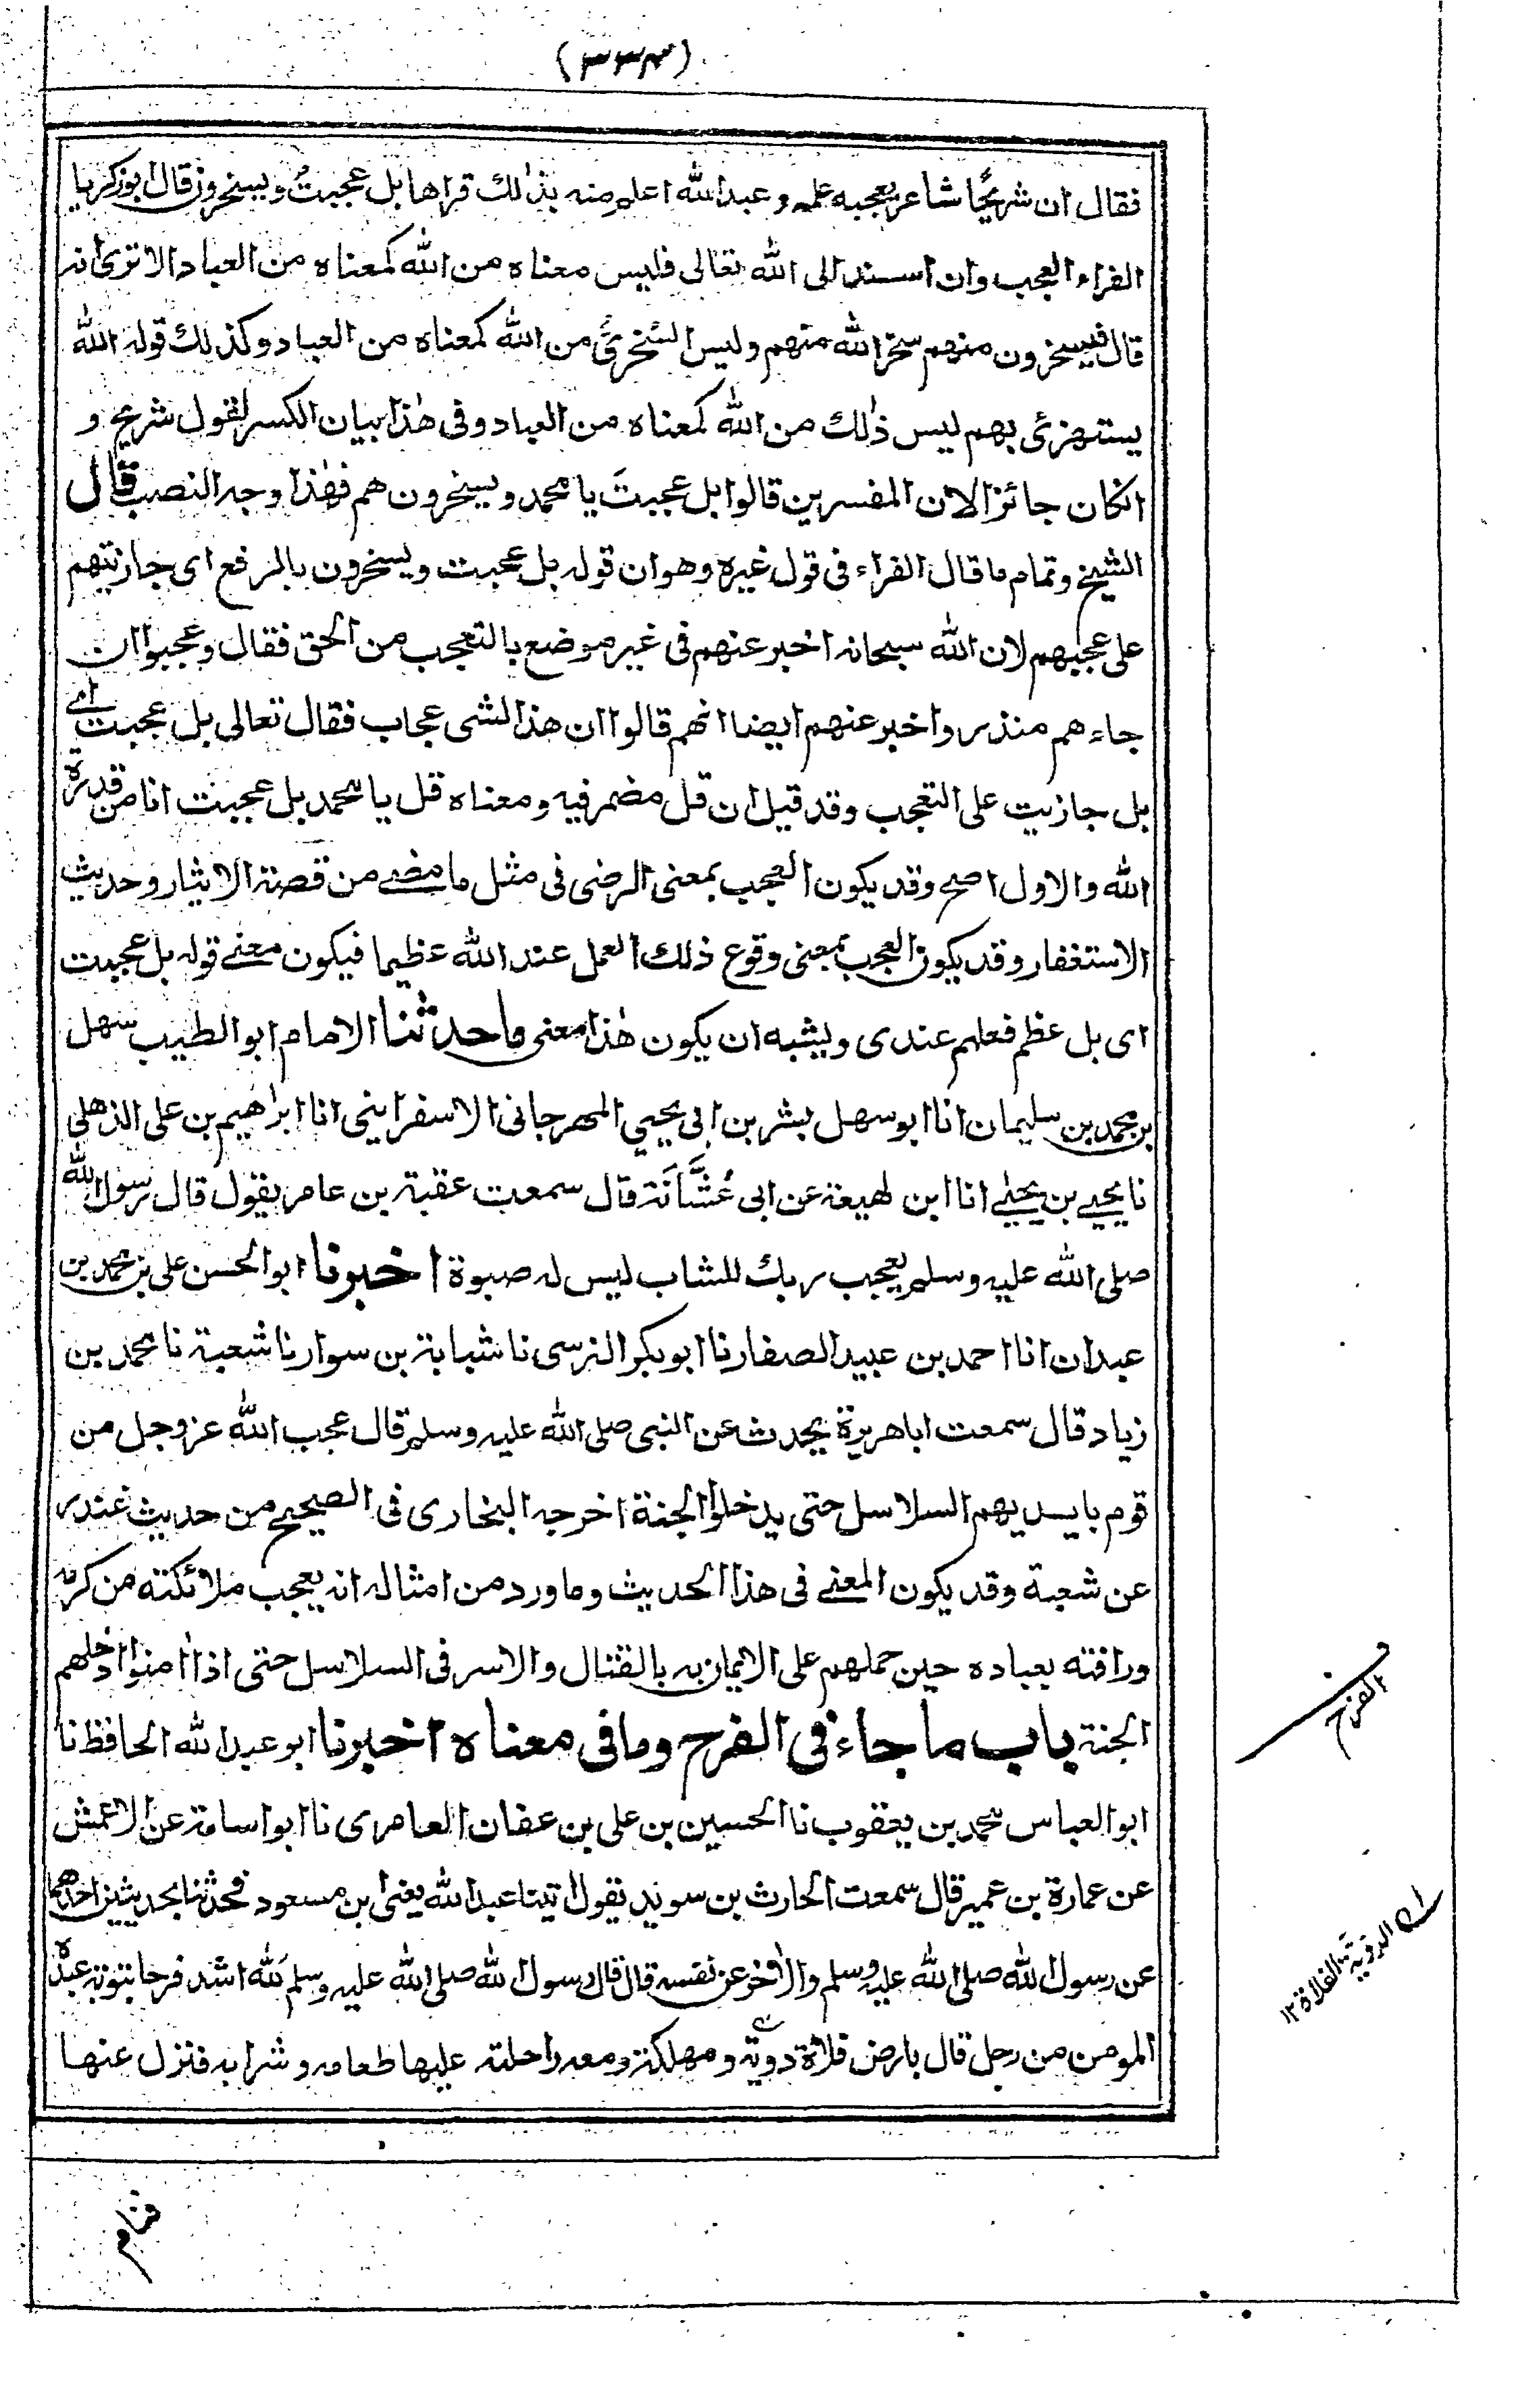 (٣٣٤)
فقال ان شريحًا شاعر يعجبه علمه وعبدالله اعلم منه بذٰلك قراها بل عجبتُ ويسخرون قال ابوزكريا
الفراء العجب وان اسند الى الله تعالى فليس معناه من الله كمعناه من العباد الا ترى انه
قال فيسخرون منهم سخر الله منهم وليس السُخرىُّ من الله كمعناه من العباد وكذلك قوله الله
يستهزئ بهم ليس ذٰلك من الله كمعناه من العباد وفى هٰذا بيان الكسر لقول شريح و
انكان جائزا لان المفسرين قالوا بل عجبتَ يا محمد ويسخرون هم فهٰذا وجه النصب قال
الشيخ وتمام ما قال الفراء فى قول غيره وهو ان قوله بل عجبت ويسخرون بالرفع اى جازيتهم
على عجبهم لان الله سبحانه اخبر عنهم فى غير موضع بالتعجب من الحق فقال وعجبوا ان
جاءهم منذر واخبر عنهم ايضا انهم قالوا ان هذا لشى عجاب فقال تعالى بل عجبت اے
بل جازيت على التعجب وقد قيل ان قل مضمر فيه ومعناه قل يا محمد بل عجبت انا من قدرة
الله والاول اصح وقد يكون العجب بمعنى الرضى فى مثل ما مضے من قصة الايثار وحديث
الاستغفار وقد يكون العجب بمعنى وقوع ذلك العمل عند الله عظيما فيكون معنے قوله بل عجبت
اى بل عظم فعلهم عندى ويشبه ان يكون هٰذا معنى ما حدثنا الامام ابو الطيب سهل
بن محمد بن سليمان انا ابو سهل بشر بن ابى يحيي المهرجانى الاسفراينى انا ابراهيم بن على الذهلى
نا يحيے بن يحيٰے انا ابن لهيعة عن ابى عُشَّانَة قال سمعت عقبة بن عامر يقول قال رسول الله
صلى الله عليه وسلم يعجب ربك للشاب ليس له صبوة اخبرنا ابو الحسن على بن محمد بن
عبدان انا احمد بن عبيد الصفار نا ابو بكر النرسى نا شبابة بن سوار نا شعبة نا محمد بن
زياد قال سمعت ابا هريرة يحدث عن النبى صلى الله عليه وسلم قال عجب الله عز وجل من
قوم بايديهم السلاسل حتى يدخلوا الجنة اخرجه البخارى فى الصحيح من حديث غندر
عن شعبة وقد يكون المعنے فى هذا الحديث وما ورد من امثاله انه يعجب ملائكته من كرمه
ورافته بعباده حين حملهم على الايمان به بالقتال والاسر فى السلاسل حتى اذا امنوا ادخلهم
الجنة باب ما جاء فى الفرح وما فى معناه اخبرنا ابو عبد الله الحافظ نا
الفرح
ابو العباس محمد بن يعقوب نا الحسين بن على بن عفان العامرى نا ابو اسامة عن الاعمش
عن عمارة بن عمير قال سمعت الحارث بن سويد يقول اتينا عبد الله يعنى ابن مسعود فحدثنا بحديثين احدهما
عن رسول الله صلى الله عليه وسلم والاخر عن نفسه قال قال رسول الله صلى الله عليه وسلم لَله اشد فرحا بتوبة عبده
المومن من رجل قال بارض فلاة دوية ومهلكة ومعه راحلته عليها طعامه وشرابه فنزل عنها
الدوية الفلاة ١٢
فنام